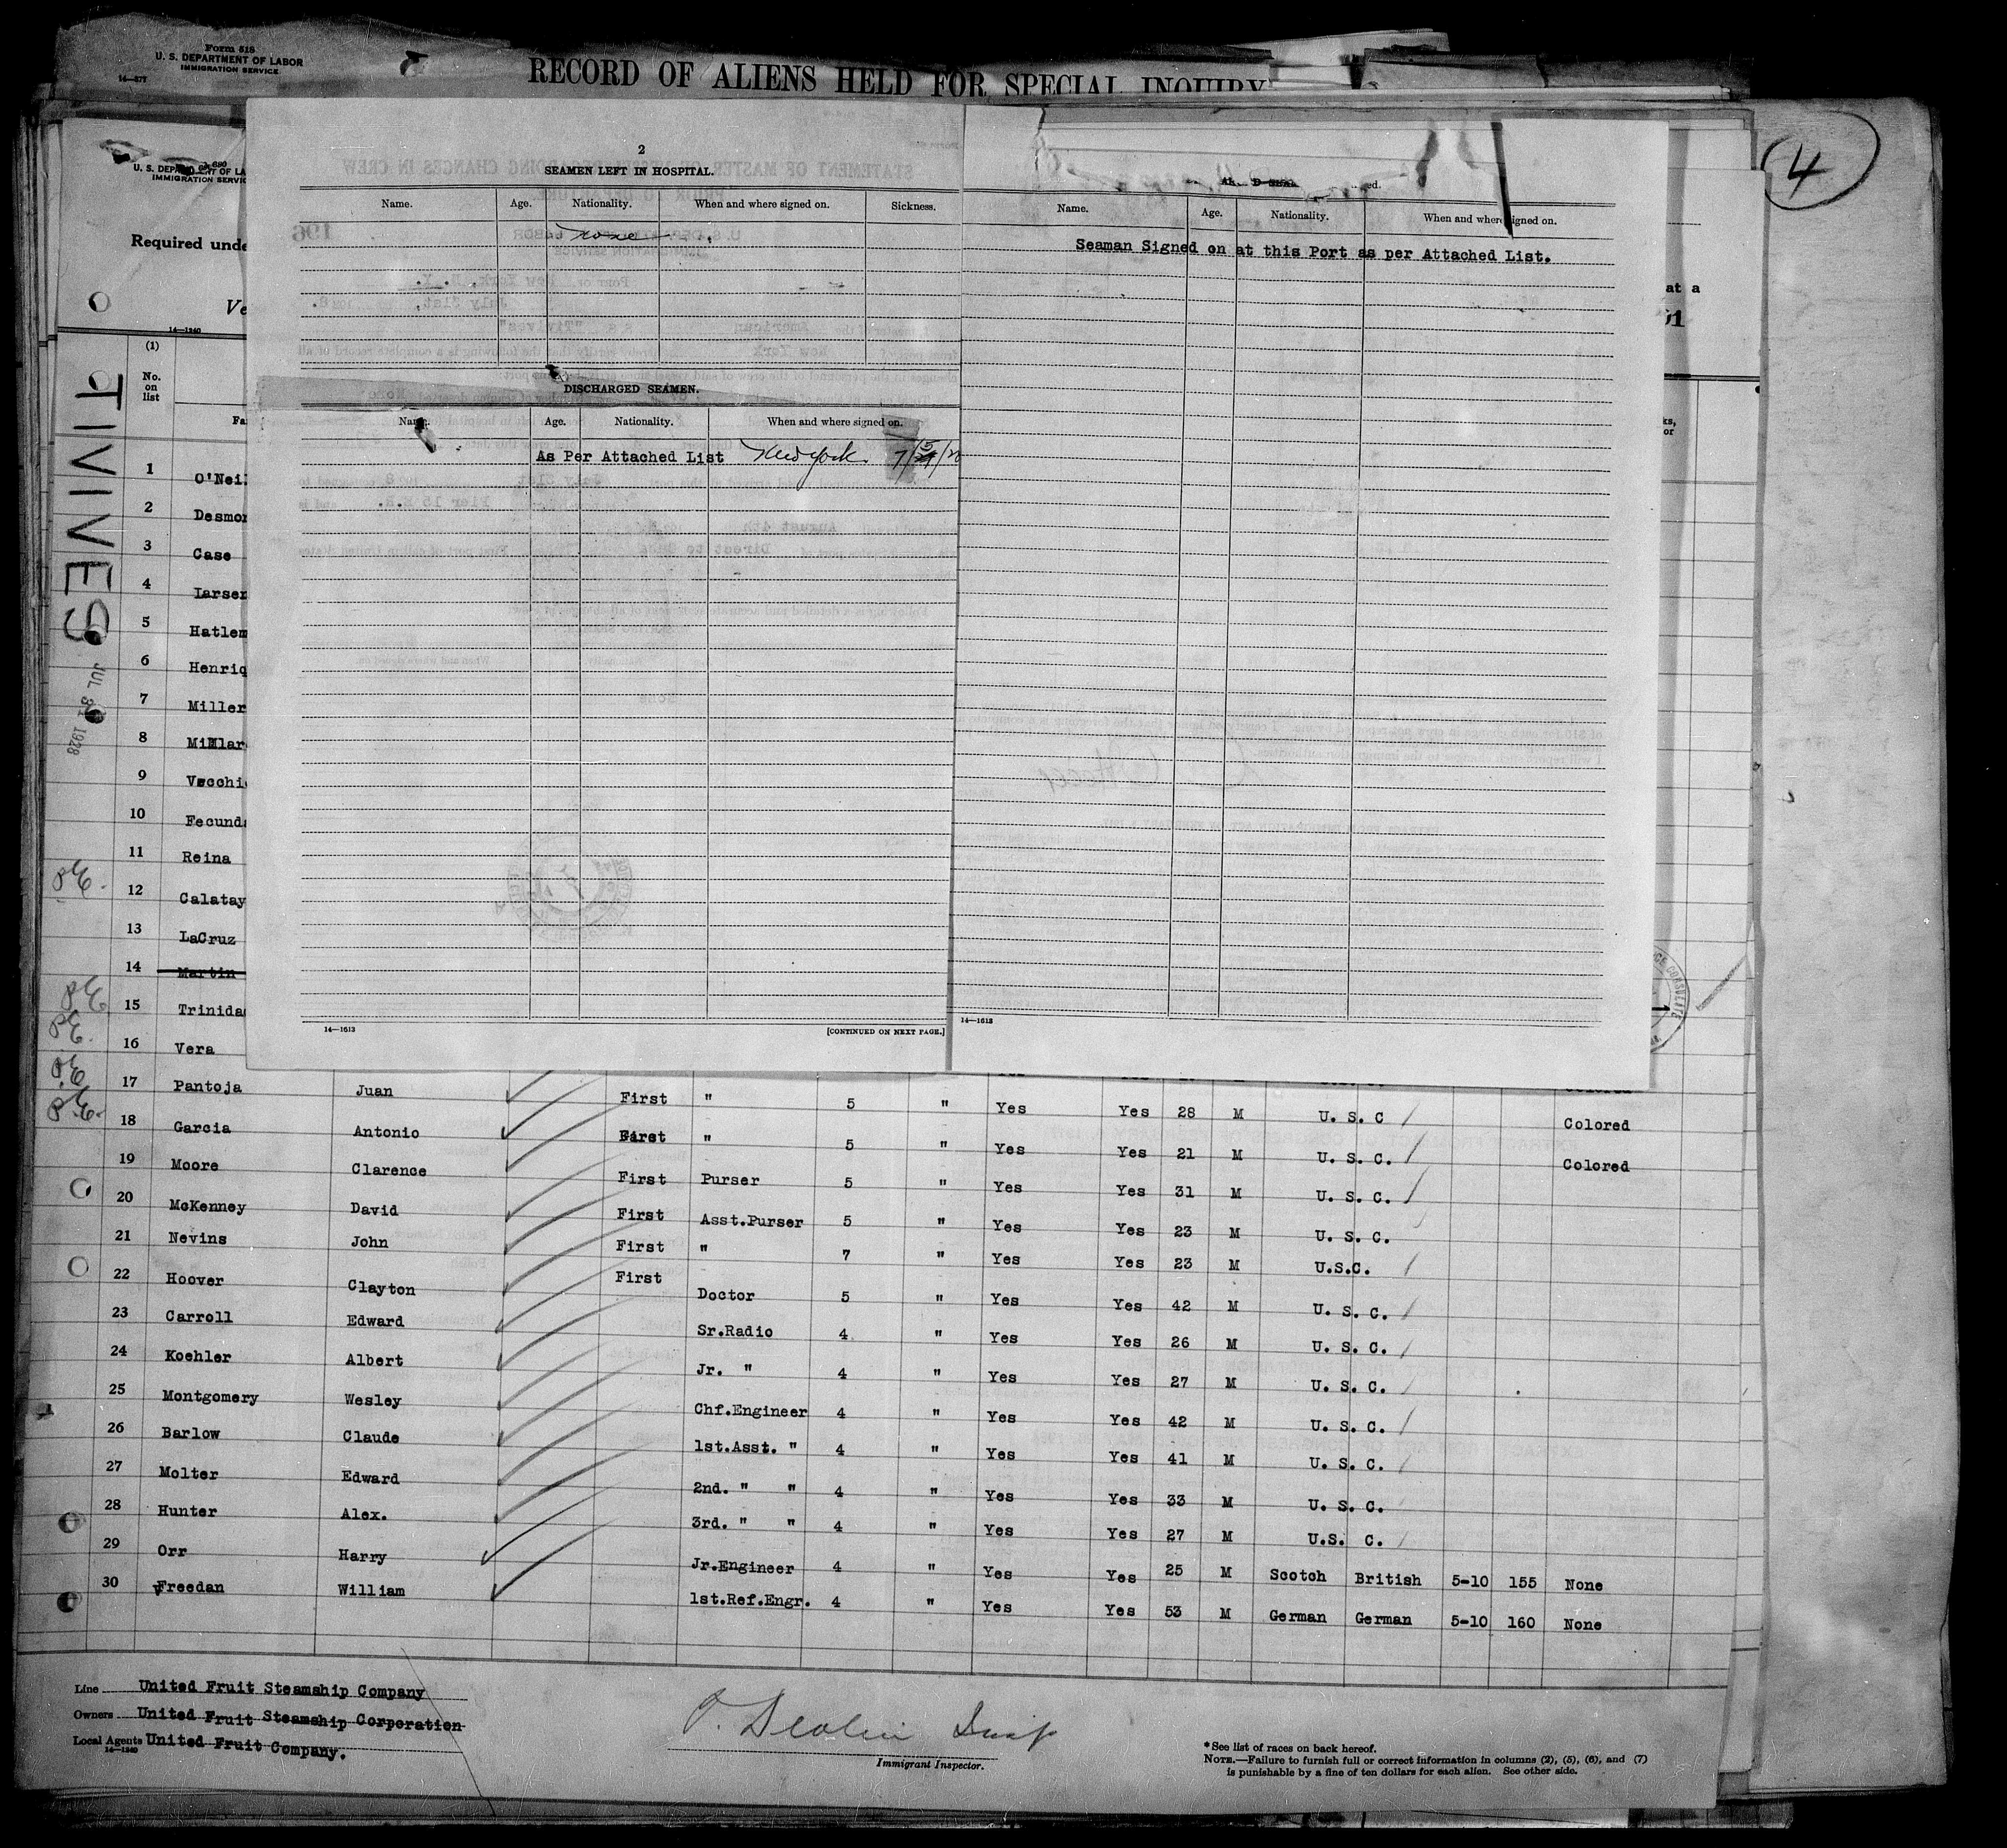 Form 518
U. S. DEPARTMENT OF LABOR
IMMIGRATION SERVICE
14—577
RECORD OF ALIENS HELD FOR SPECIAL INQUIRY
4
680
U. S. DEPARTMENT OF LA
IMMIGRATION SERVIC
Required unde
Ve
14—1240
at a
(1)
No.
on
list
Fa
TIVIVES
JUL 31 1928
2
SEAMEN LEFT IN HOSPITAL.
Name. Age. Nationality. When and where signed on. Sickness.
None
DISCHARGED SEAMEN.
Name. Age. Nationality. When and where signed on.
As Per Attached List New York 7/5/28
14—1613
[CONTINUED ON NEXT PAGE.]
ed.
Name. Age. Nationality. When and where signed on.
Seaman Signed on at this Port as per Attached List.
14—1613
1 O'Neil
2 Desmon
3 Case
4 Larsen
5 Hatlem
6 Henriq
7 Miller
8 Millar
9 Vecchi
10 Fecunda
11 Reina
P.E. 12 Calatay
13 LaCruz
14 Martin
P.E. 15 Trinidad
P.E. 16 Vera
P.E. 17 Pantoja Juan First " 5 " Yes Yes 28 M U. S. C Colored
P.E. 18 Garcia Antonio First " 5 " Yes Yes 21 M U. S. C. Colored
19 Moore Clarence First Purser 5 " Yes Yes 31 M U. S. C.
20 McKenney David First Asst.Purser 5 " Yes Yes 23 M U. S. C.
21 Nevins John First " 7 " Yes Yes 23 M U.S.C.
22 Hoover Clayton First Doctor 5 " Yes Yes 42 M U. S. C.
23 Carroll Edward Sr.Radio 4 " Yes Yes 26 M U. S. C.
24 Koehler Albert Jr. " 4 " Yes Yes 27 M U. S. C.
25 Montgomery Wesley Chf.Engineer 4 " Yes Yes 42 M U. S. C.
26 Barlow Claude 1st.Asst. " 4 " Yes Yes 41 M U. S. C.
27 Molter Edward 2nd. " " 4 " Yes Yes 33 M U. S. C.
28 Hunter Alex. 3rd. " " 4 " Yes Yes 27 M U.S. C.
29 Orr Harry Jr.Engineer 4 " Yes Yes 25 M Scotch British 5-10 155 None
30 Freedan William 1st.Ref.Engr. 4 " Yes Yes 53 M German German 5-10 160 None
Line United Fruit Steamship Company
Owners United Fruit Steamship Corporation
Local Agents United Fruit Company.
14—1240
Immigrant Inspector.
*See list of races on back hereof.
NOTE.—Failure to furnish full or correct information in columns (2), (5), (6), and (7)
is punishable by a fine of ten dollars for each alien. See other side.